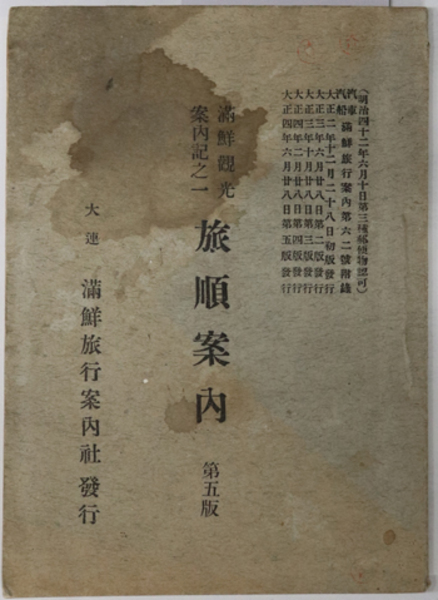 (明治四十二年六月十日第三種郵便物認可)
汽車汽船滿鮮旅行案內第六二號附錄
大正二年十二月二十八日初版發行
大正三年六月廿八日第二版發行
大正三年十月廿八日第三版發行
大正四年二月廿八日第四版發行
大正四年六月廿八日第五版發行
滿鮮觀光
案內記之一
旅順案內
第五版
大連
滿鮮旅行案內社發行